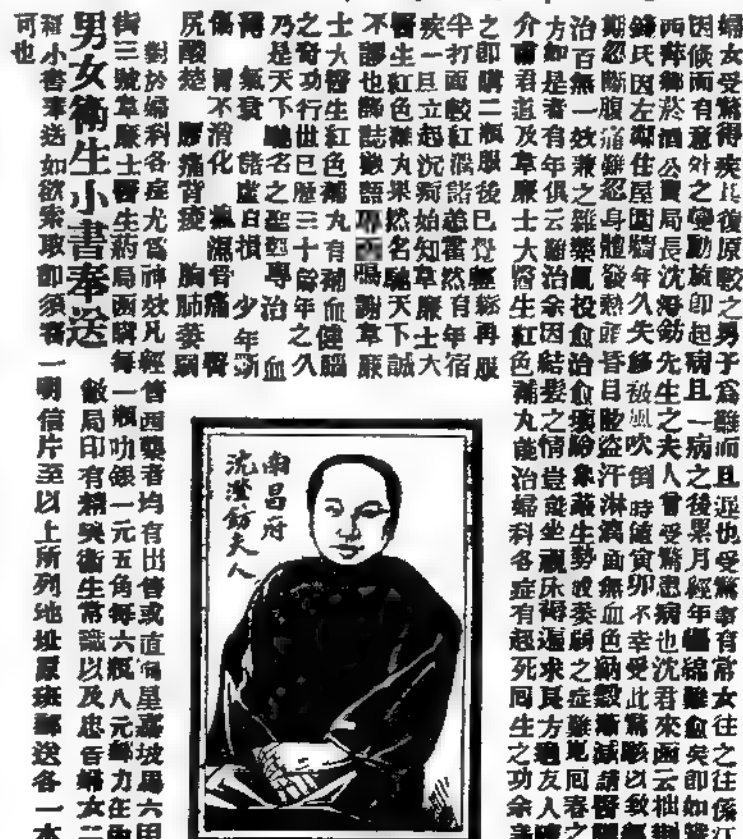 婦女受驚得疾其復原較之男子為難而且遲也受驚事有常女往之往係江
因倐而有意外之變動旋即起病且一病之後累月經年纏綿難愈矣即如
西 鄉菸酒公賣局長沈 先生之夫人曾受驚患病也沈君來函云拙荊
錢氏因左鄰住屋圍牆年久失修被風吹倒時值寅卯不幸受此驚駭以致
期忽斷腹痛難忍身體發熱頭昏目眩盜汗淋漓面無血色納穀漸減請醫
治百無一效兼之雜藥亂投愈治愈壞 象叢生勢成萎弱之症難見回春之
方如是者有年俱云難治余因結髮之情豈能坐視床褥遍求良方 友人
介甫君道及韋廉士大醫生紅色補丸能治婦科各症有起死回生之功余
之即購二瓶服後已覺輕鬆再服
半打面較紅潤諸恙霍然有年宿
疾一旦立起沉疴始知韋廉士大
醫生紅色補丸果然名馳天下誠
不謬也 誌數語 鳴謝韋廉
士大醫生紅色補丸有補血健腦
之奇功行世已歷三十餘年之久
乃是天下馳名之聖 專治 血
薄 氣衰 諸虛百損 少年斲
傷 胃不消化 濕骨痛 臀
尻酸楚 腰痛背痠 胸肺萎弱
對於婦科各症尤為神效凡經售西藥者均有出售或直 星嘉坡馬六甲
街三號韋廉士醫生藥局函購每一瓶叻銀一元五角每六瓶八元郵力在
男女衛生小書奉送
敝局印有精美衛生常識以及忠告婦女二
種小書奉送如欲索取即須寄一明信片至以上所列地址原班郵送各一本
可也
南昌府
沈瀅 夫人